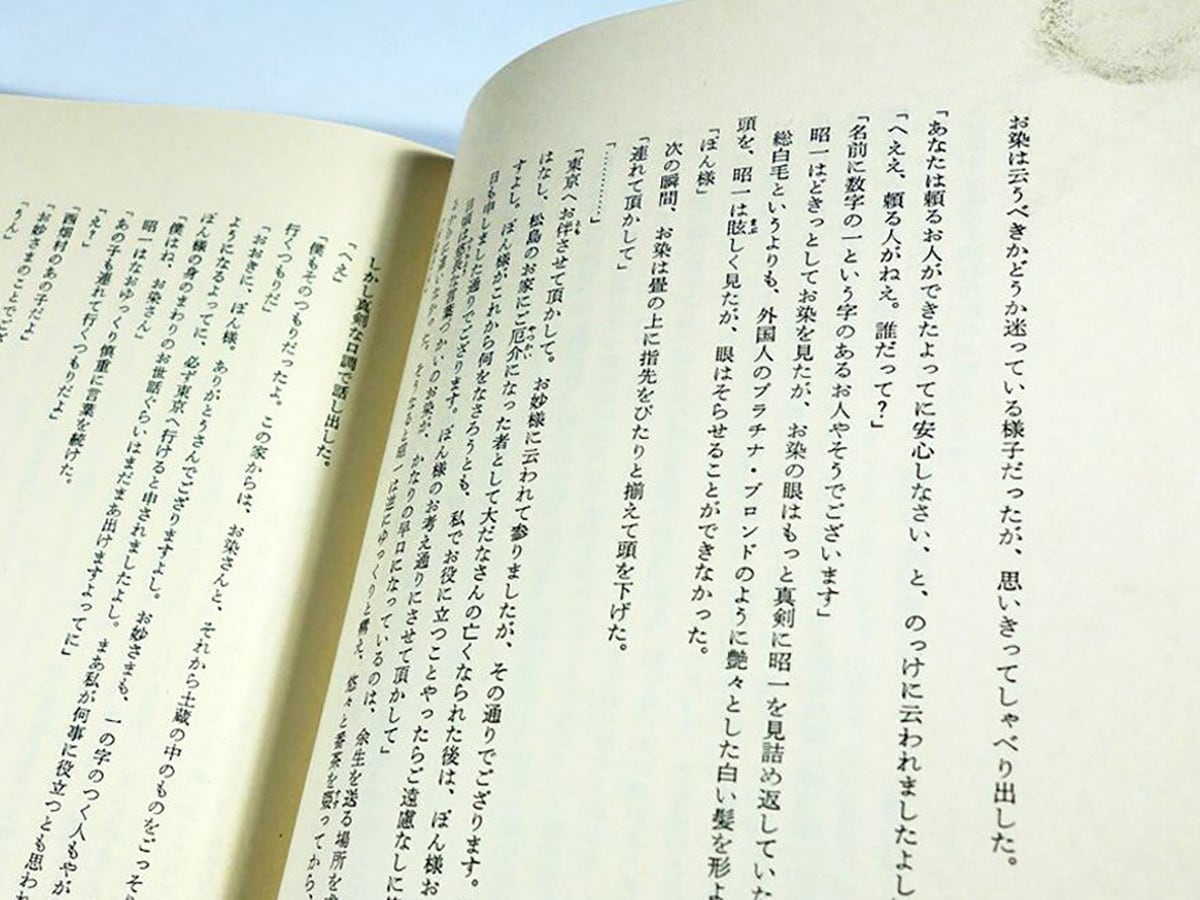 お染は云うべきか、どうか迷っている様子だったが、思いきってしゃべり出した。
「あなたは頼るお人ができたよってに安心しなさい、と、のっけに云われましたよし
「へええ、頼る人がねえ。誰だって？」
「名前に数字の一という字のあるお人やそうでございます」
昭一はどきっとしてお染を見たが、お染の眼はもっと真剣に昭一を見詰め返していた
総白毛というよりも、外国人のプラチナ・ブロンドのように艶々とした白い髪を形よ
頭を、昭一は眩しく見たが、眼はそらせることができなかった。
「ぼん様」
次の瞬間、お染は畳の上に指先をぴたりと揃えて頭を下げた。
「連れて頂かして」
「…………」
「東京へお伴させて頂かして。お妙様に云われて参りましたが、その通りでござります。
はなし、松島のお家にご厄介になった者として大だなさんの亡くなられた後は、ぼん様お
すよし。ぼん様がこれから何をなさろうとも、私でお役に立つことやったらご遠慮なしに
日も申しました通りでございます。ぼん様のお考え通りにさせて頂かして」
日頃は
のお染が、かなりの早口になっているのは、余生を送る場所を
そうなると昭一は逆にゆっくりと構え、悠々と番茶を啜ってから、
しかし真剣な口調で話し出した。
「へえ」
「僕もそのつもりだったよ。この家からは、お染さんと、それから土蔵の中のものをごっそり
行くつもりだ」
「おおきに、ぼん様。ありがとうさんでござりますよし。お妙さまも、一の字のつく人もやが
ようになるよってに、必ず東京へ行けると申されましたよし。まあ私が何事に役立つとも思われ
ぼん様の身のまわりのお世話ぐらいはまだまあ出けますよってに」
「僕はね、お染さん」
昭一はなおゆっくり慎重に言葉を続けた。
「あの子も連れて行くつもりだよ」
「えぇ」
「西畑村のあの子だよ」
「お妙さまのことでござ
「うん」